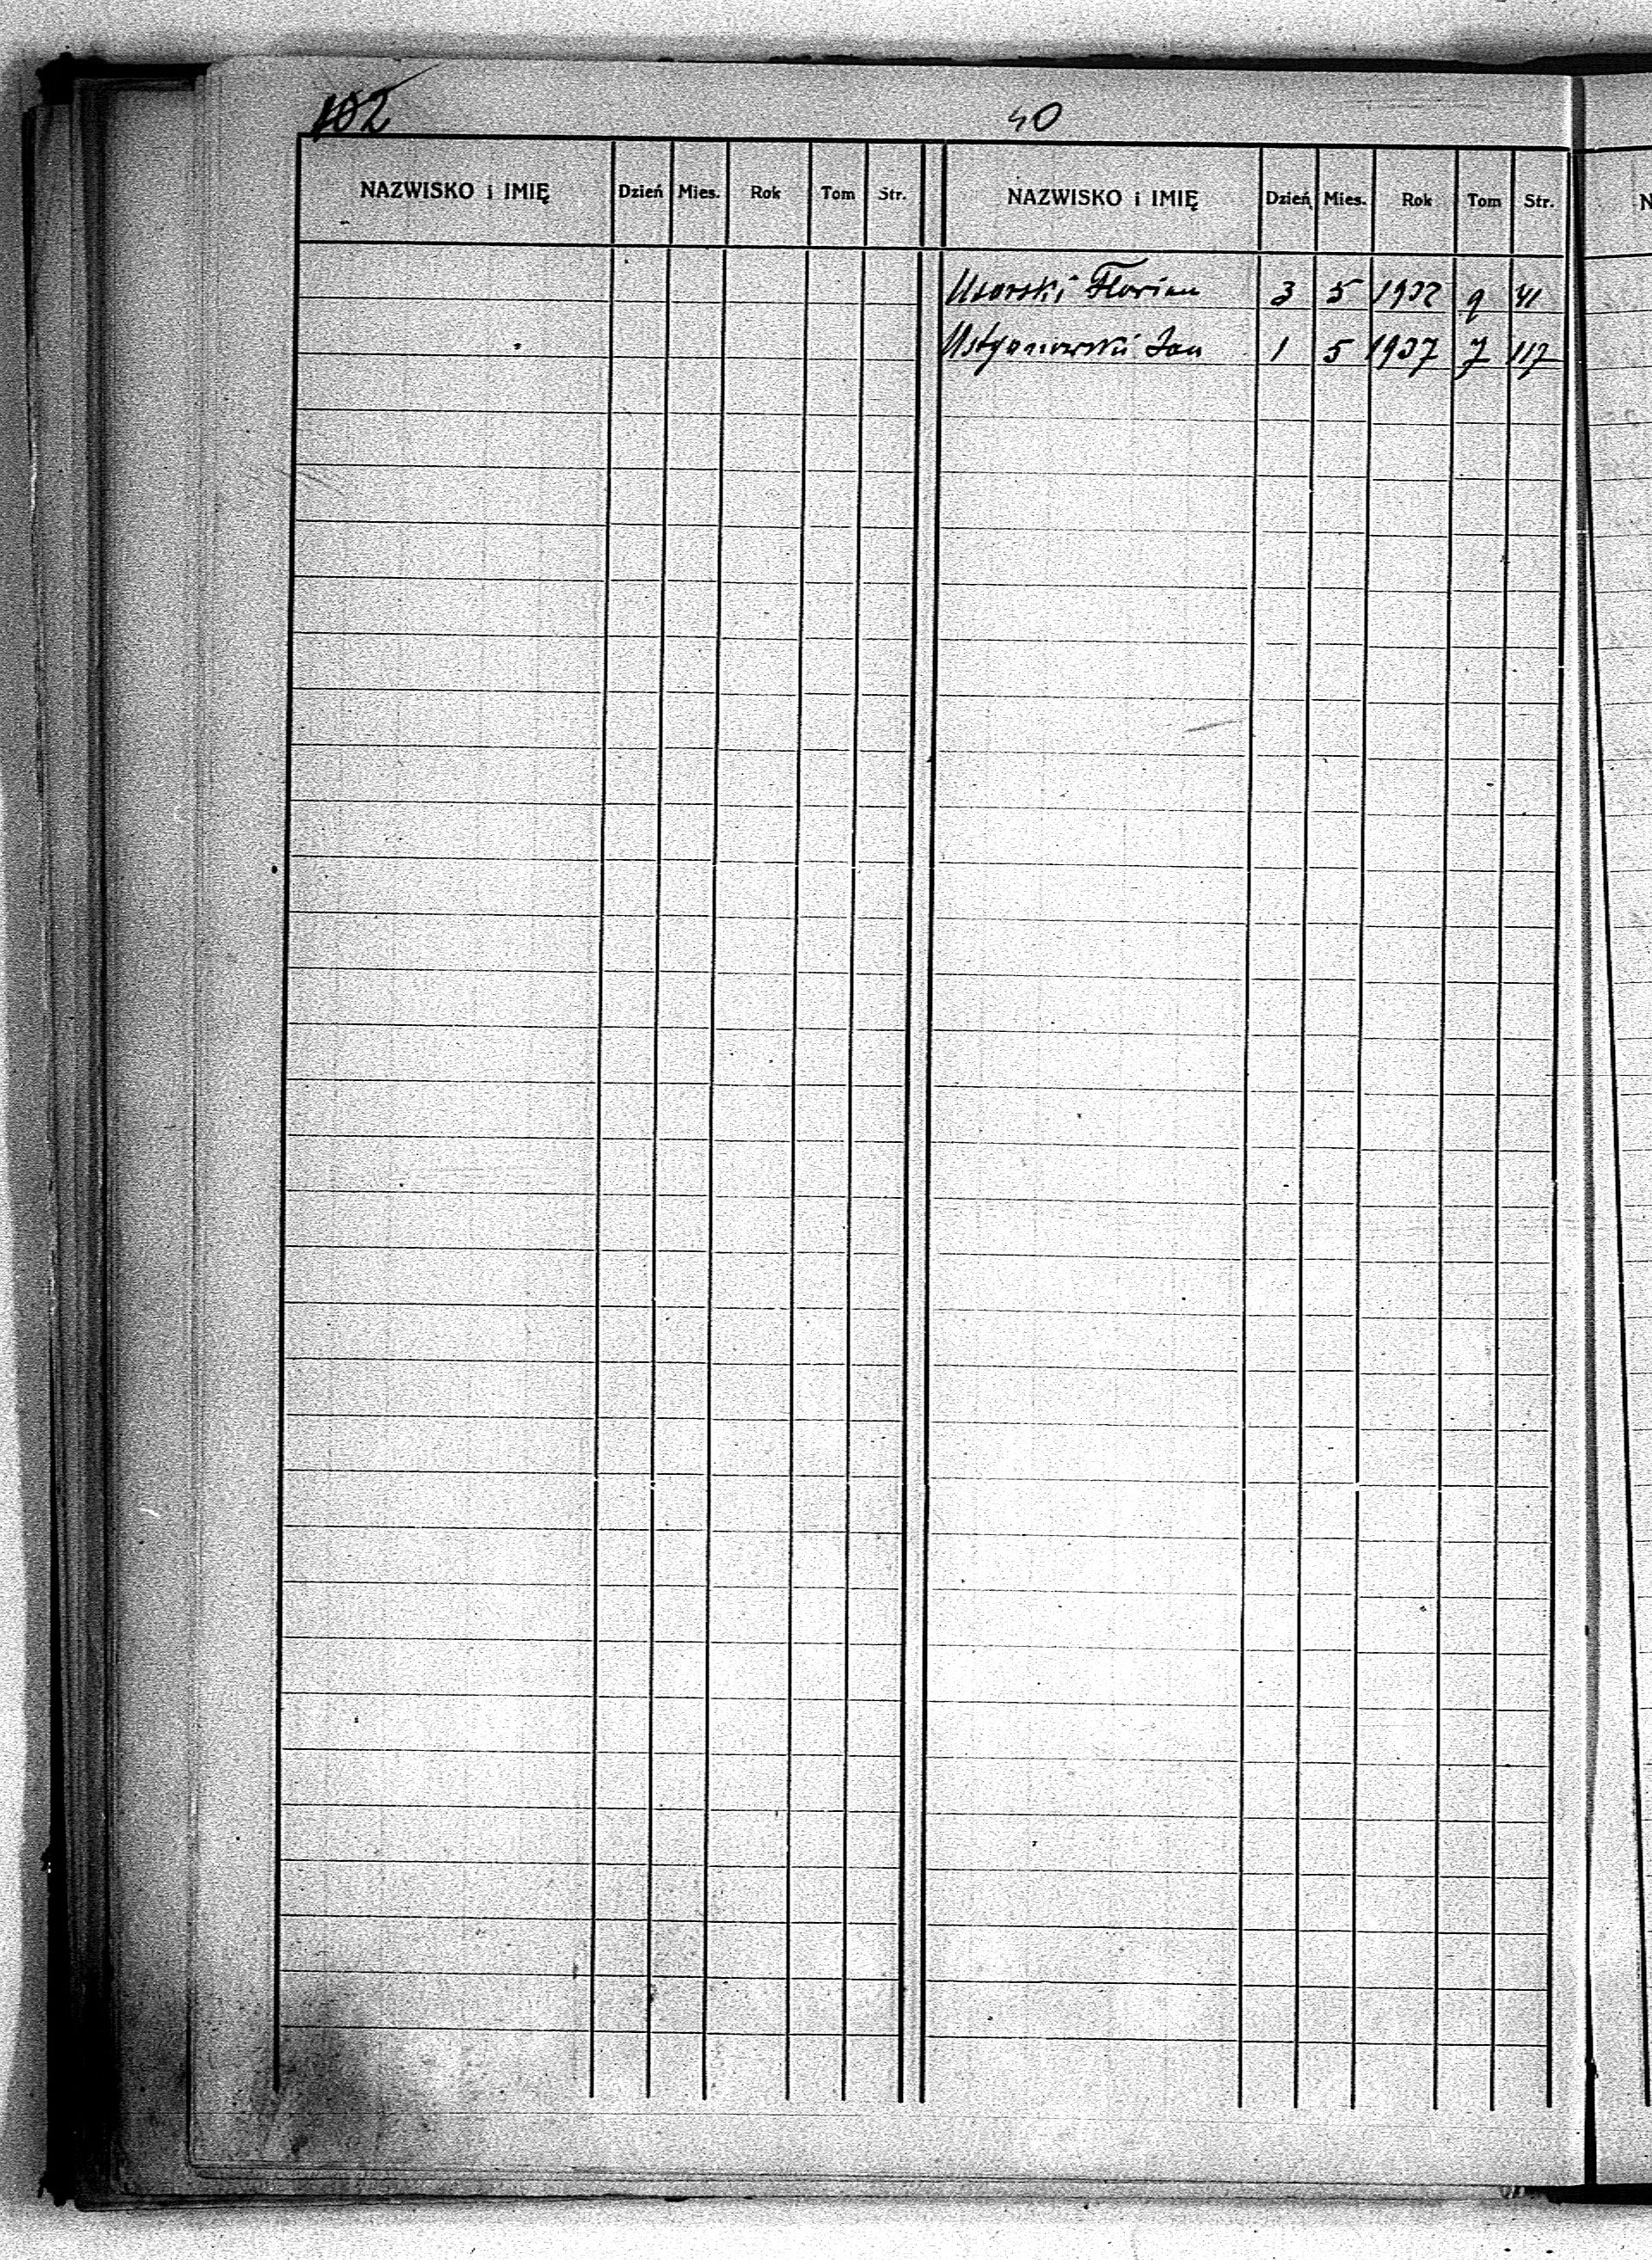 102
40
NAZWISKO i IMIĘ Dzień Mies. Rok Tom Str. NAZWISKO i IMIĘ Dzień Mies. Rok Tom Str. N
Usarski Florian 3 5 1932 9 41
Ustyanowski Jan 1 5 1937 7 117